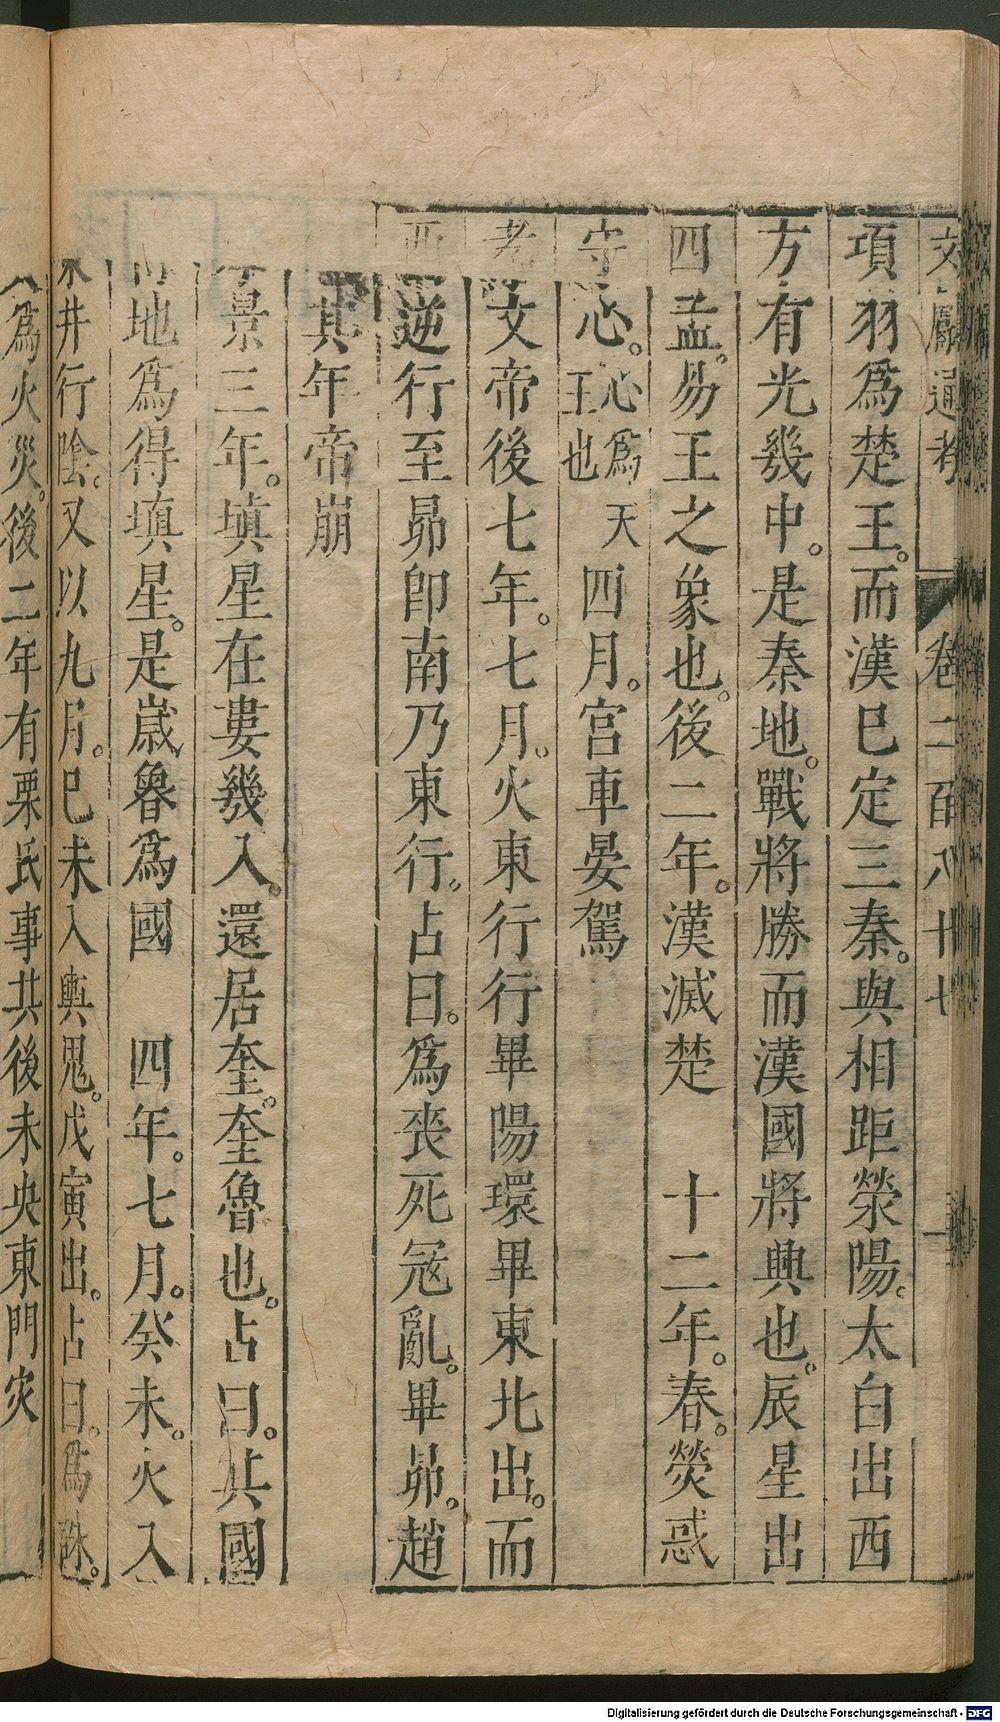 文獻通考 卷二百八十七 一
項羽爲楚王。而漢巳定三秦。與相距滎陽。太白出西
方有光幾中。是秦地。戰將勝而漢國將興也。辰星出
四孟。易王之象也。後二年。漢滅楚 十二年。春。熒惑
守心。心爲天王也 四月。宮車晏駕
文帝後七年。七月。火東行行畢陽環畢東北出。而
逆行至昴卽南乃東行。占曰。爲喪死冦亂。畢昴。趙
其年帝崩
景三年。填星在婁幾入。還居奎。奎魯也。占曰。其國
地爲得填星。是嵗魯爲國 四年。七月。癸未。火入
井行陰。又以九月。巳未入輿鬼。戊寅出。占曰。爲誅。
爲火災。後二年有栗氏事其後未央東門灾
Digitalisierung gefördert durch die Deutsche Forschungsgemeinschaft - DFG